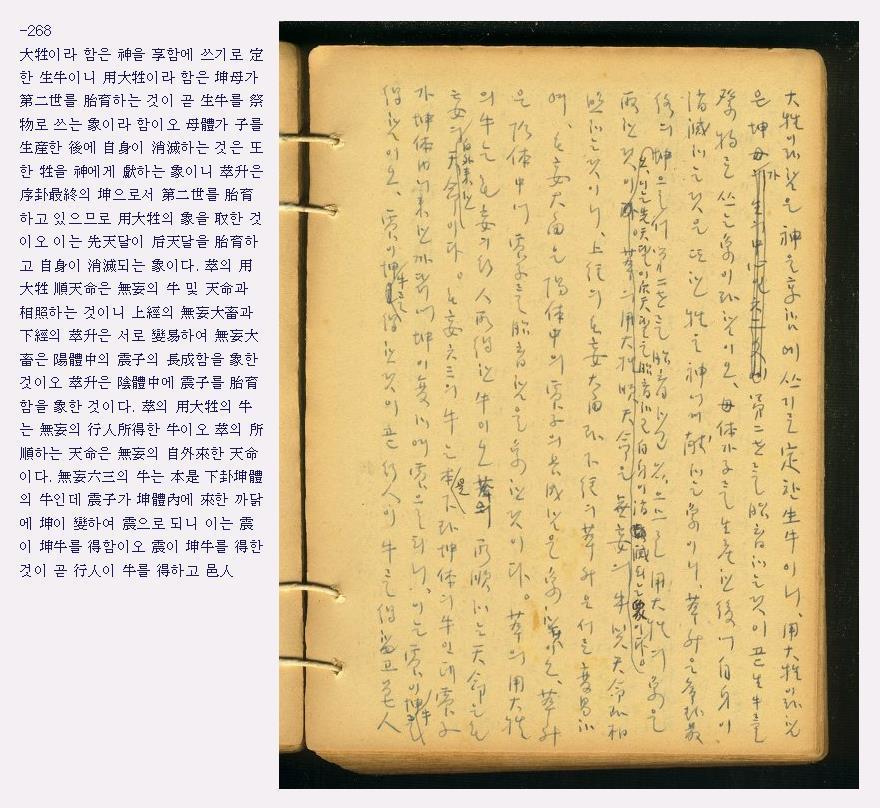 -268
大牲이라 함은 神을 享함에 쓰기로 定
한 生牛이니 用大牲이라 함은 坤母가
第二世를 胎育하는 것이 곧 生牛를 祭
物로 쓰는 象이라 함이오 母體가 子를
生産한 後에 自身이 消滅하는 것은 또
한 牲을 神에게 獻하는 象이니 萃升은
序卦最終의 坤으로서 第二世를 胎育
하고 있으므로 用大牲의 象을 取한 것
이오 이는 先天달이 后天달을 胎育하
고 自身이 消滅되는 象이다. 萃의 用
大牲 順天命은 無妄의 牛 및 天命과
相照하는 것이니 上經의 無妄大畜과
下經의 萃升은 서로 變易하여 無妄大
畜은 陽體中의 震子의 長成함을 象한
것이오 萃升은 陰體中에 震子를 胎育
함을 象한 것이다. 萃의 用大牲의 牛
는 無妄의 行人所得한 牛이오 萃의 所
順하는 天命은 無妄의 自外來한 天命
이다. 無妄六三의 牛는 本是 下卦坤體
의 牛인데 震子가 坤體內에 來한 까닭
에 坤이 變하여 震으로 되니 이는 震
이 坤牛를 得함이오 震이 坤牛를 得한
것이 곧 行人이 牛를 得하고 邑人
大牲이라 함은 神을 享함에 쓰기로 定한 生牛이니、用大牲이라 함
은 坤母가 第二世를 胎育하는 것이 곧 生牛를
祭物로 쓰는 象이라 함이오、母体가 子를 生産한 後에 自身이
消滅하는 것은 또한 牲을 神에게 献하는 象이니、萃升은 序卦最
終의 坤으로서 第二世를 胎育하고 있으므로 用大牲의 象을
오 이는 先天달이 后天달을 胎育하고 自身이 消滅되는 象이다。
取한 것이 萃의 用大牲 順天命은 無妄의 牛 및 天命과 相
照하는 것이니、上經의 无妄大畜과 下經의 萃升은 서로 變易하
여、无妄大畜은 陽体中의 震子의 長成함을 象한 것이오、萃升
은 陰体中에 震子를 胎育함을 象한 것이다。萃의 用大牲
의 牛는 无妄의 行人所得한 牛이오 萃의 所順하는 天命은 无
妄의 自外來한 天命이다。无妄六三의 牛는 本是 下卦坤体의 牛인데 震子
가 坤体內에 來한 까닭에 坤이 變하여 震으로 되니、이는 震이 坤牛를
得함이오、震이 坤牛를 得한 것이 곧 行人이 牛를 得하고 邑人